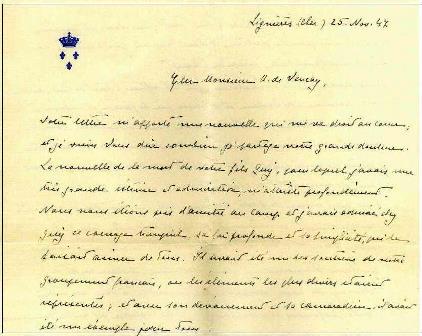 Lignières (Cher) 25. Nov. 47
Cher Monsieur H. de
Votre lettre m'apporte une nouvelle qui me va droit au coeur,
et je veux vous dire combien je partage votre grande douleur.
La nouvelle de la mort de votre fils Guy, pour lequel j'avais une
très grande estime et admiration, m'attriste profondément.
Nous nous étions pris d'amitié au camp et j'avais admiré chez
Guy ce courage tranquille, sa foi profonde et sa simplicité, qui le
faisait aimer de tous. Il était un des soutiens de notre
groupement français, où les éléments les plus divers étaient
représentés; et avec son dévouement et sa camaraderie, il avait
été un exemple pour tous